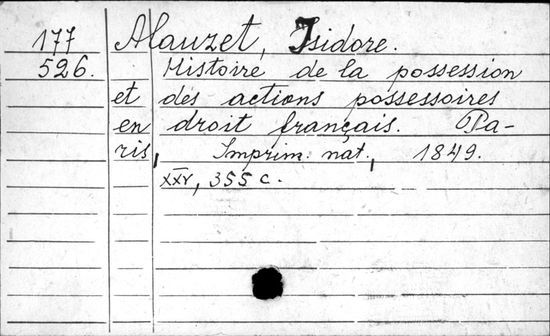 177 Alauzet, Isidore.
526. Histoire de la possession
et des actions possessoires
en droit français. Pa-
ris, Imprim. nat., 1849.
xxv, 355 c.